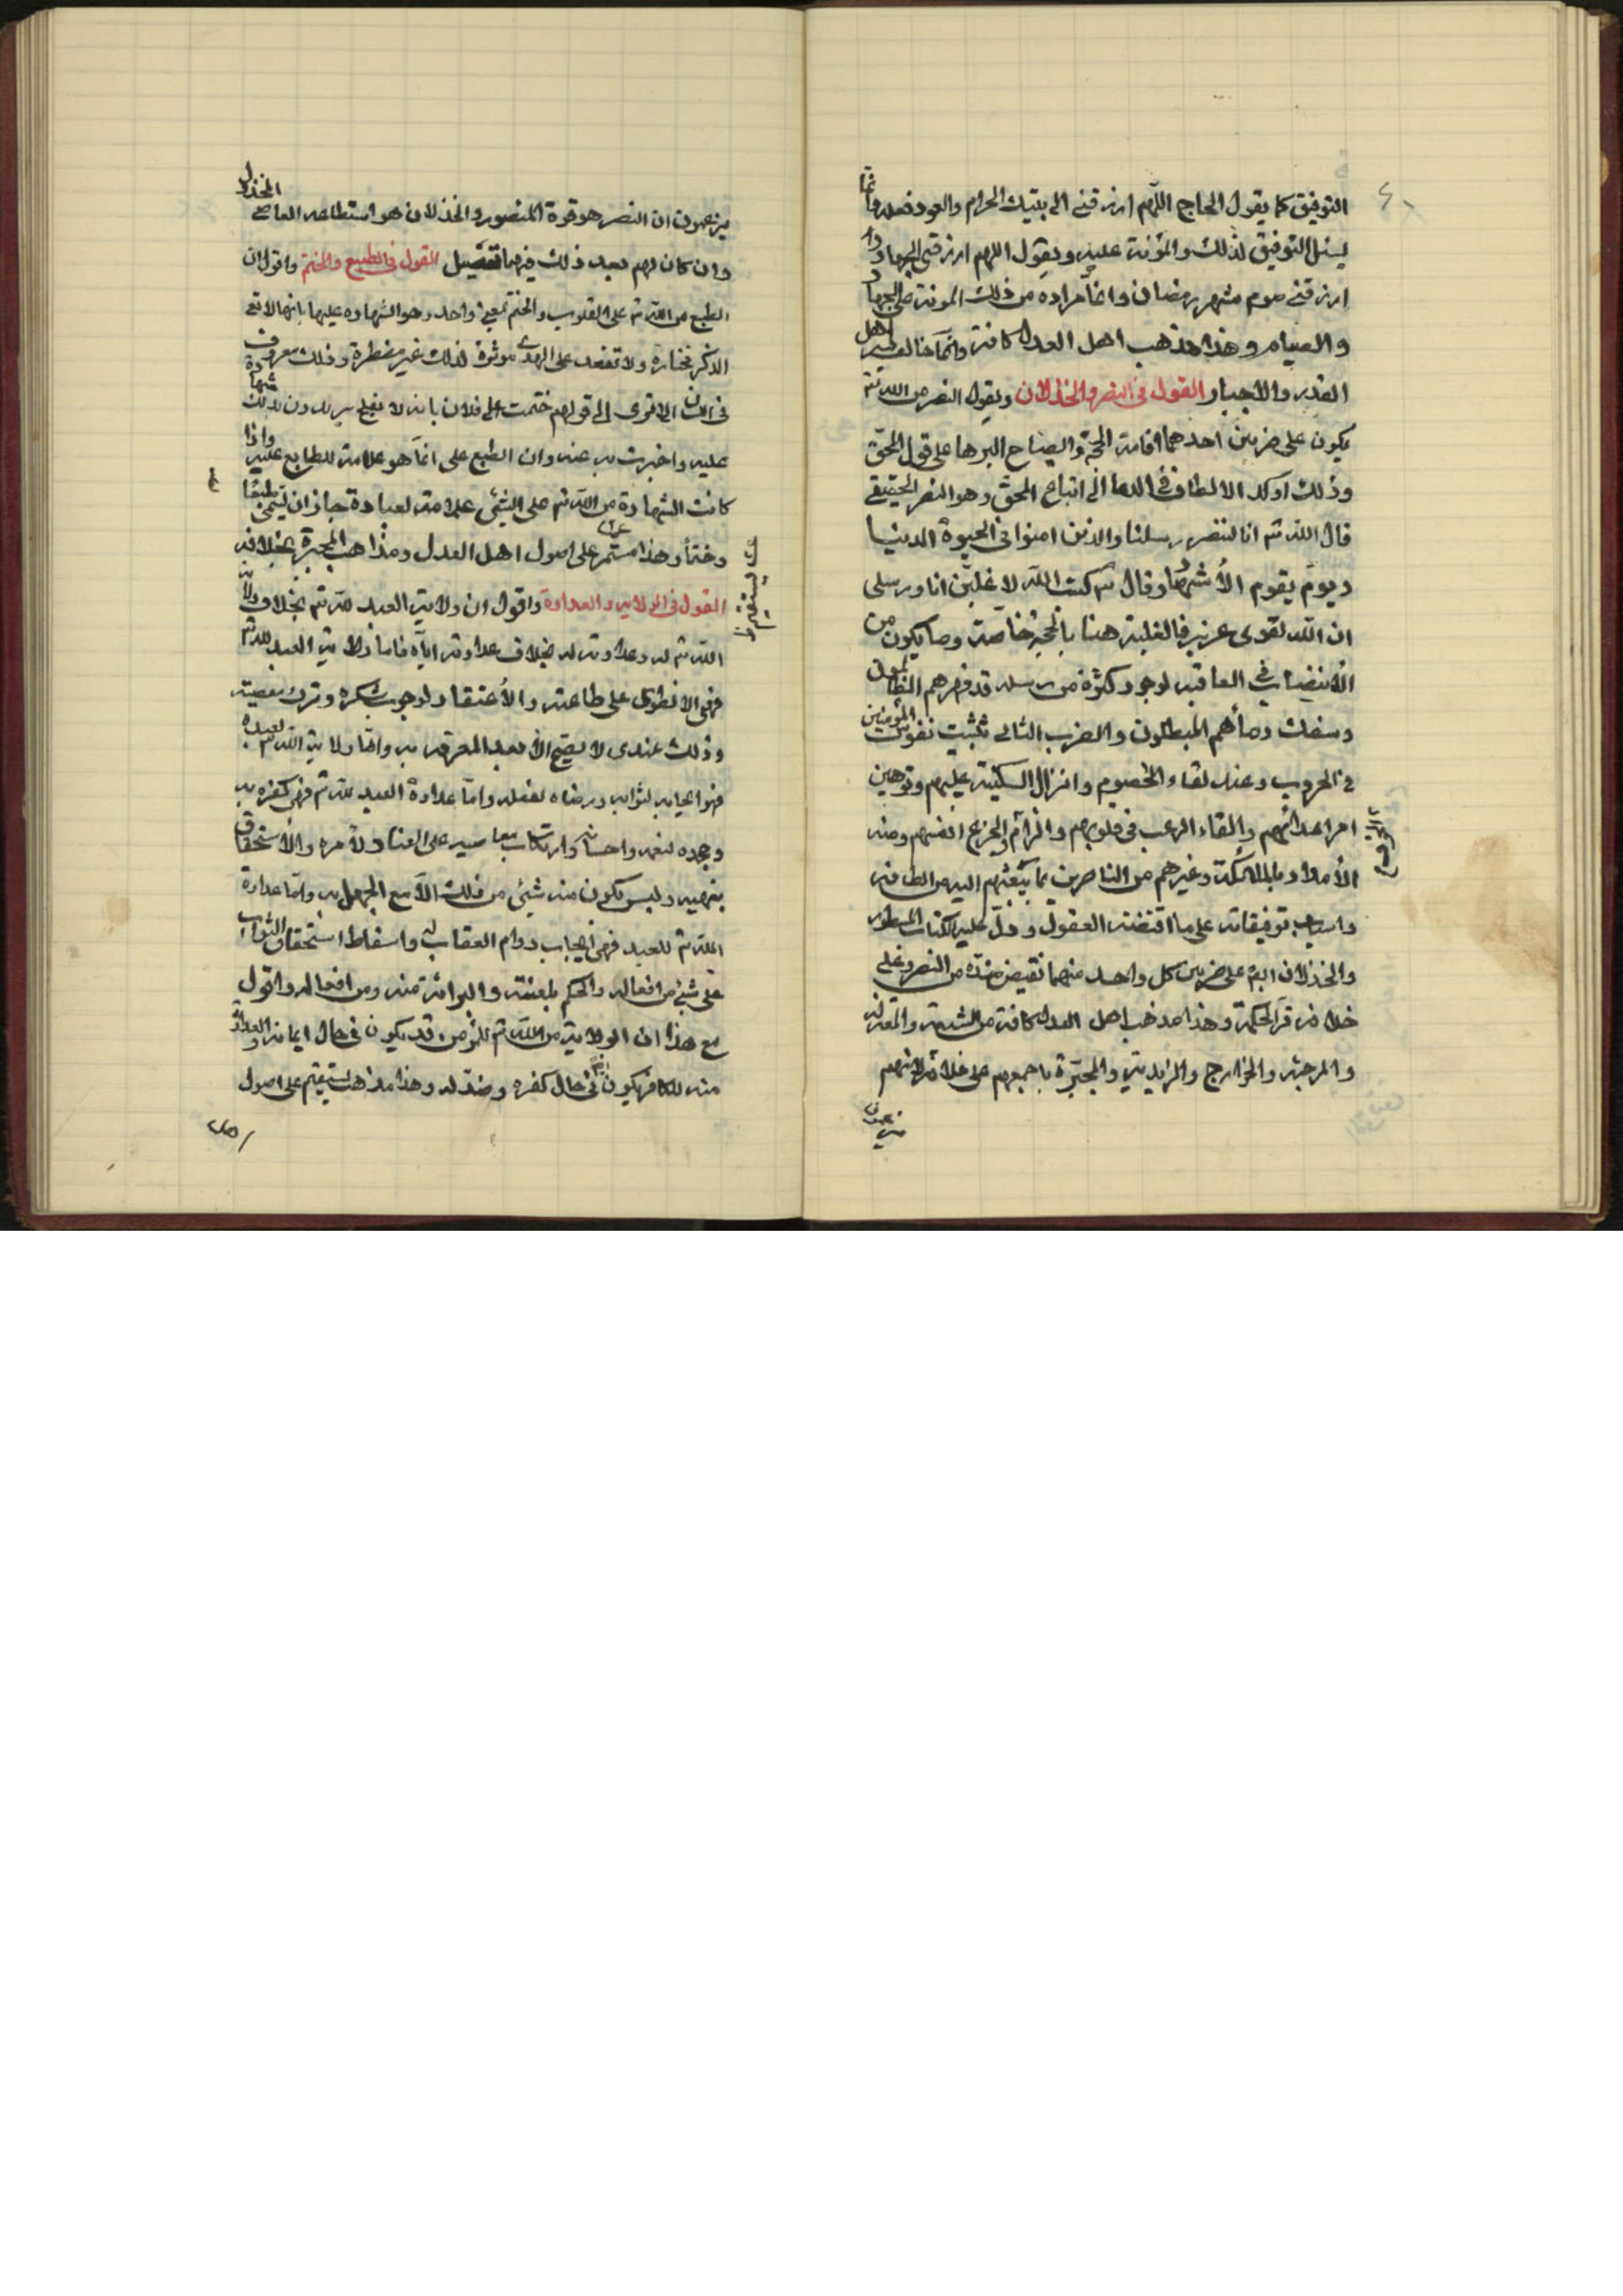 التوفيق كما يقول الحاج اللّهم ارزقني الى بيتك الحرام والعود فعله وانما
يسئل التوفيق لذلك والمؤنة عليه ويقول اللهم ارزقني الجهاد و
ارزقني صوم شهر رمضان وانما مراده من ذلك المونة على الجهاد
والصيام وهذا مذهب اهل العدل كافة وانما خالف فيه اهل
القدر والاجبار القول في النصر والخذلان ويقول النصر من الله تع
يكون على ضربين احدهما اقامة الحجة وايضاح البرهان على قول المحق
وذلك اوكد الالطاف في الدعا الى اتباع المحق وهو النصر الحقيقي
قال الله تع انا لننصر رسلنا والذين امنوا في الحيوة الدنيا
ويوم يقوم الأشهاد وقال تع كتب الله لاغلبّن انا ورسلى
ان الله لقوى عزيز فالغلبة هنا بالحجة خاصة وما يكون من
الانتصار في العاقبة لوجود كثرة من رسله قد قهرهم الظالمون
وسفك دمائهم المبطلون والضرب الثاني تثبيت نفوس المؤمنين
في الحروب وعند لقاء الخصوم وانزال السكينة عليهم وتوهين
امر اعدائهم والقاء الرعب في قلوبهم والزام الجزع انفسهم ومنه
الأمداد بالملائكة وغيرهم من الناصرين بما يبعثهم اليه من الطافه
واسباب توفيقاته على ما اقتضته العقول ودلّ عليه الكتاب المسطور
والخذلان ايضا على ضربين كل واحد منهما نقيض ضدّه من النصر وعلى
خلافه في الحكمة وهذا مذهب اهل العدل كافة من الشيعة والمعتزلة
والمرجئة والخوارج والزيدية والمجبّرة باجمعهم على خلافه لانهم
يزعمون
يزعمون ان النصر هو قوة المنصور والخذلان هو استطاعه العاصي المخذول
وان كان لهم بعد ذلك فيهما تفصيل القول في الطبع والختم واقول ان
الطبع من الله تع على القلوب والختم بمعنى واحد وهو الشهاده عليها بانها لا تعى
الذكر مختارة ولا تعتمد على الهدى مؤثرة لذلك غير مضطرة وذلك معروف
في اللسان الا ترى الى قولهم ختمت على فلان بانه لا يفلح يريدون بذلك شهادة
عليه واخبرت به عنه وان الطبع على انما هو علامة للطابع عليه واذا
كانت الشهادة من الله تع على الشيئ علامة لعباده جاز ان يسمى طبعًا
وختماً وهذا مستمر على اصول اهل العدل ومذاهب المجبرة بخلافه
القول في الولايه والعداوة واقول ان ولاية العبد لله تع بخلاف ولاية
الله تع له وعداوته له بخلاف عداوته اياه فاما ولاية العبد لله تع
فهي الانطواء على طاعته والأعتقاد لوجوب شكره وترك معصيته
وذلك عندى لا يصح الا بعد المعرفه به واما ولاية الله تع لعبده
فهو ايجابه لثوابه ورضاه لفعله واما عداوة العبد لله تع فهي كفره به
وجحده لنعمه واحسانه وارتكاب معاصيه على العناد لأمره والأستحقاق
بنهيه وليس يكون منه شيئ من ذلك الا مع الجهل به وامّا عداوة
الله تع للعبد فهي ايجاب دوام العقاب له واسقاط استحقاق الثواب
على شئ من افعاله والحكم بلعنته والبرائة منه ومن افعاله واقول
مع هذا ان الولاية من الله تع للمؤمن قد يكون في حال ايمانه والعداوة
منه للكافر يكون في حال كفره وضد له وهذا مذهب يستقيم على اصول